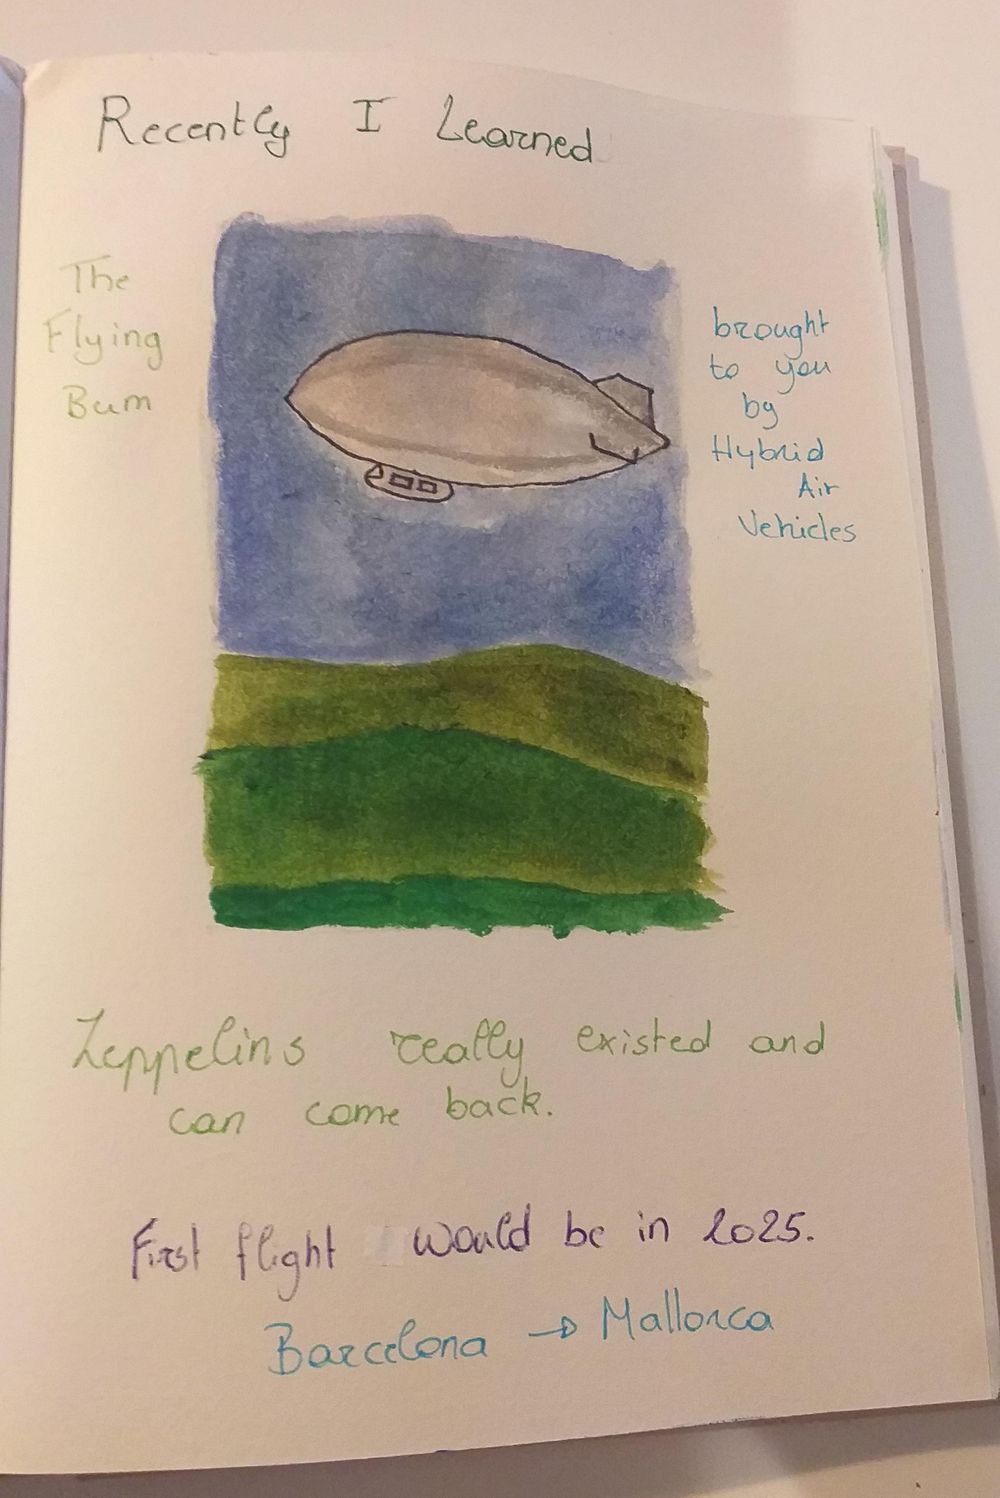 Recently I Learned
The
Flying
Bum
brought
to you
by
Hybrid
Air
Vehicles
Zeppelins really existed and
can come back.
First flight would be in 2025.
Barcelona → Mallorca